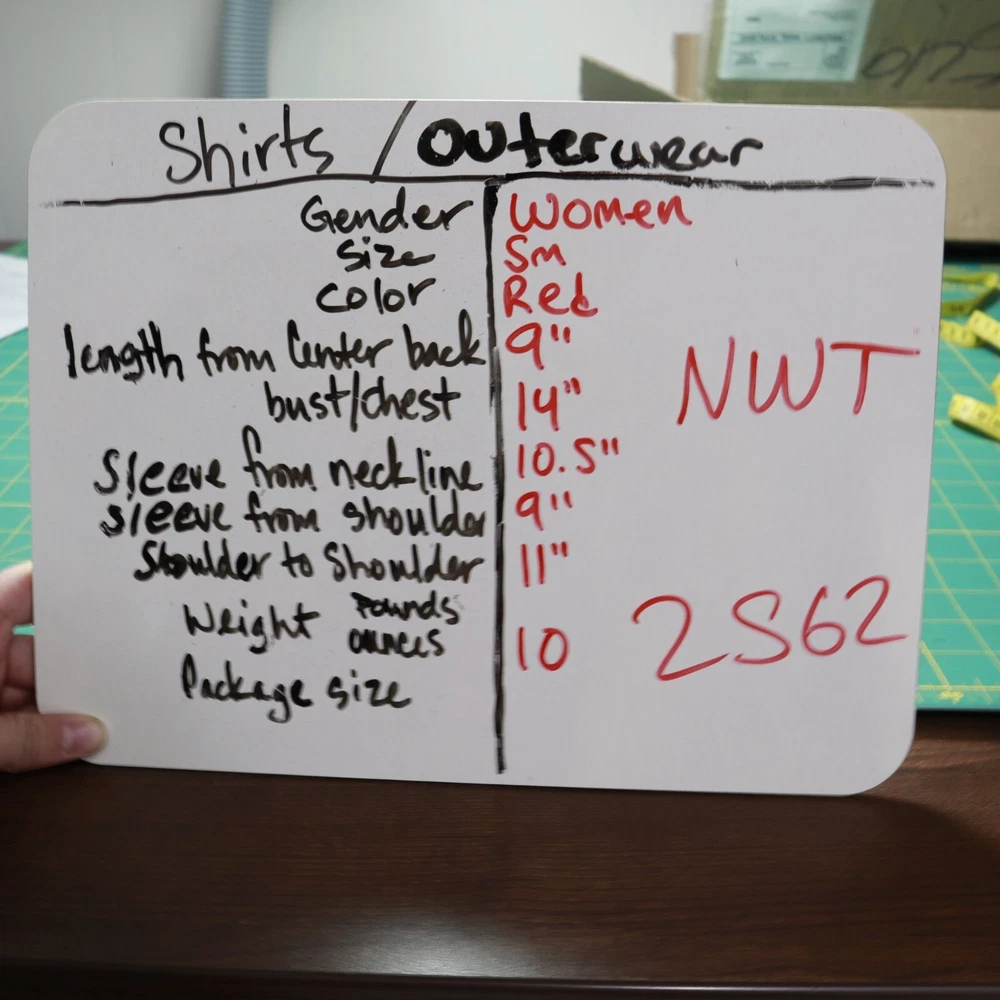 Shirts / Outerwear
Gender Women
Size Sm
Color Red
length from Center back 9"
NWT
bust/chest 14"
Sleeve from neckline 10.5"
sleeve from shoulder 9"
Shoulder to Shoulder 11"
Weight Pounds
ounces 10
2S62
Package size